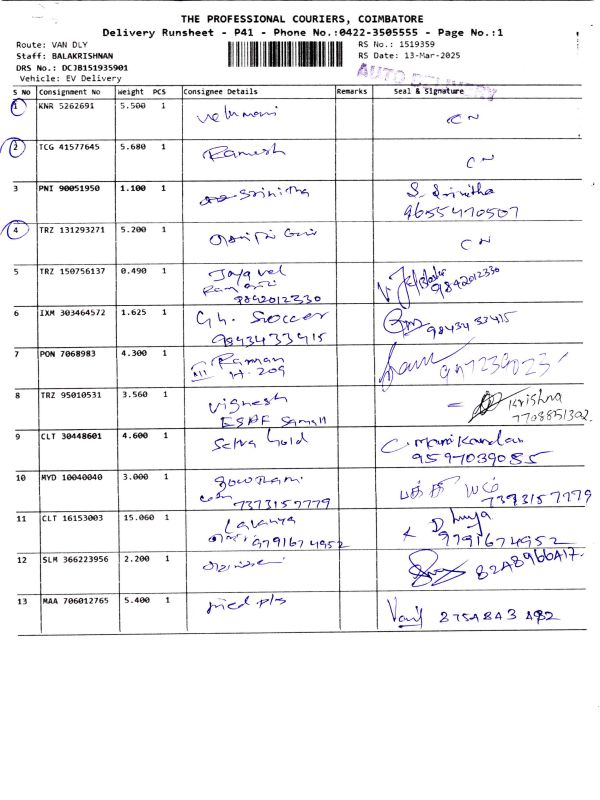 THE PROFESSIONAL COURIERS, COIMBATORE
Delivery Runsheet - P41 - Phone No.:0422-3505555 - Page No.:1
Route: VAN DLY RS No.: 1519359
Staff: BALAKRISHNAN RS Date: 13-Mar-2025
DRS No.: DCJB151935901
AUTO DELIVERY
Vehicle: EV Delivery
S No Consignment No Weight PCS Consignee Details Remarks Seal & Signature
1 KNR 5262691 5.500 1 CN
2 TCG 41577645 5.680 1 Ramesh CN
3 PNI 90051950 1.100 1 Srinitha S. Srinitha
9655470507
4 TRZ 131293271 5.200 1 CN
5 TRZ 150756137 0.490 1 Jayavel
9842012330 9842012330
6 IXM 303464572 1.625 1 Gh. Soccer
9843433415 9843433415
7 PON 7068983 4.300 1 Raman
H-209
8 TRZ 95010531 3.560 1 Vignesh = Krishna
ESAF Small 7708851302
9 CLT 30448601 4.600 1 Setra Gold C. Manikandan
9597039085
10 MYD 10040040 3.000 1 Gowtham
7373157779 7373157779
11 CLT 16153003 15.060 1 Lavanya
9791674952 9791674952
12 SLM 366223956 2.200 1
13 MAA 706012765 5.400 1 Med pls